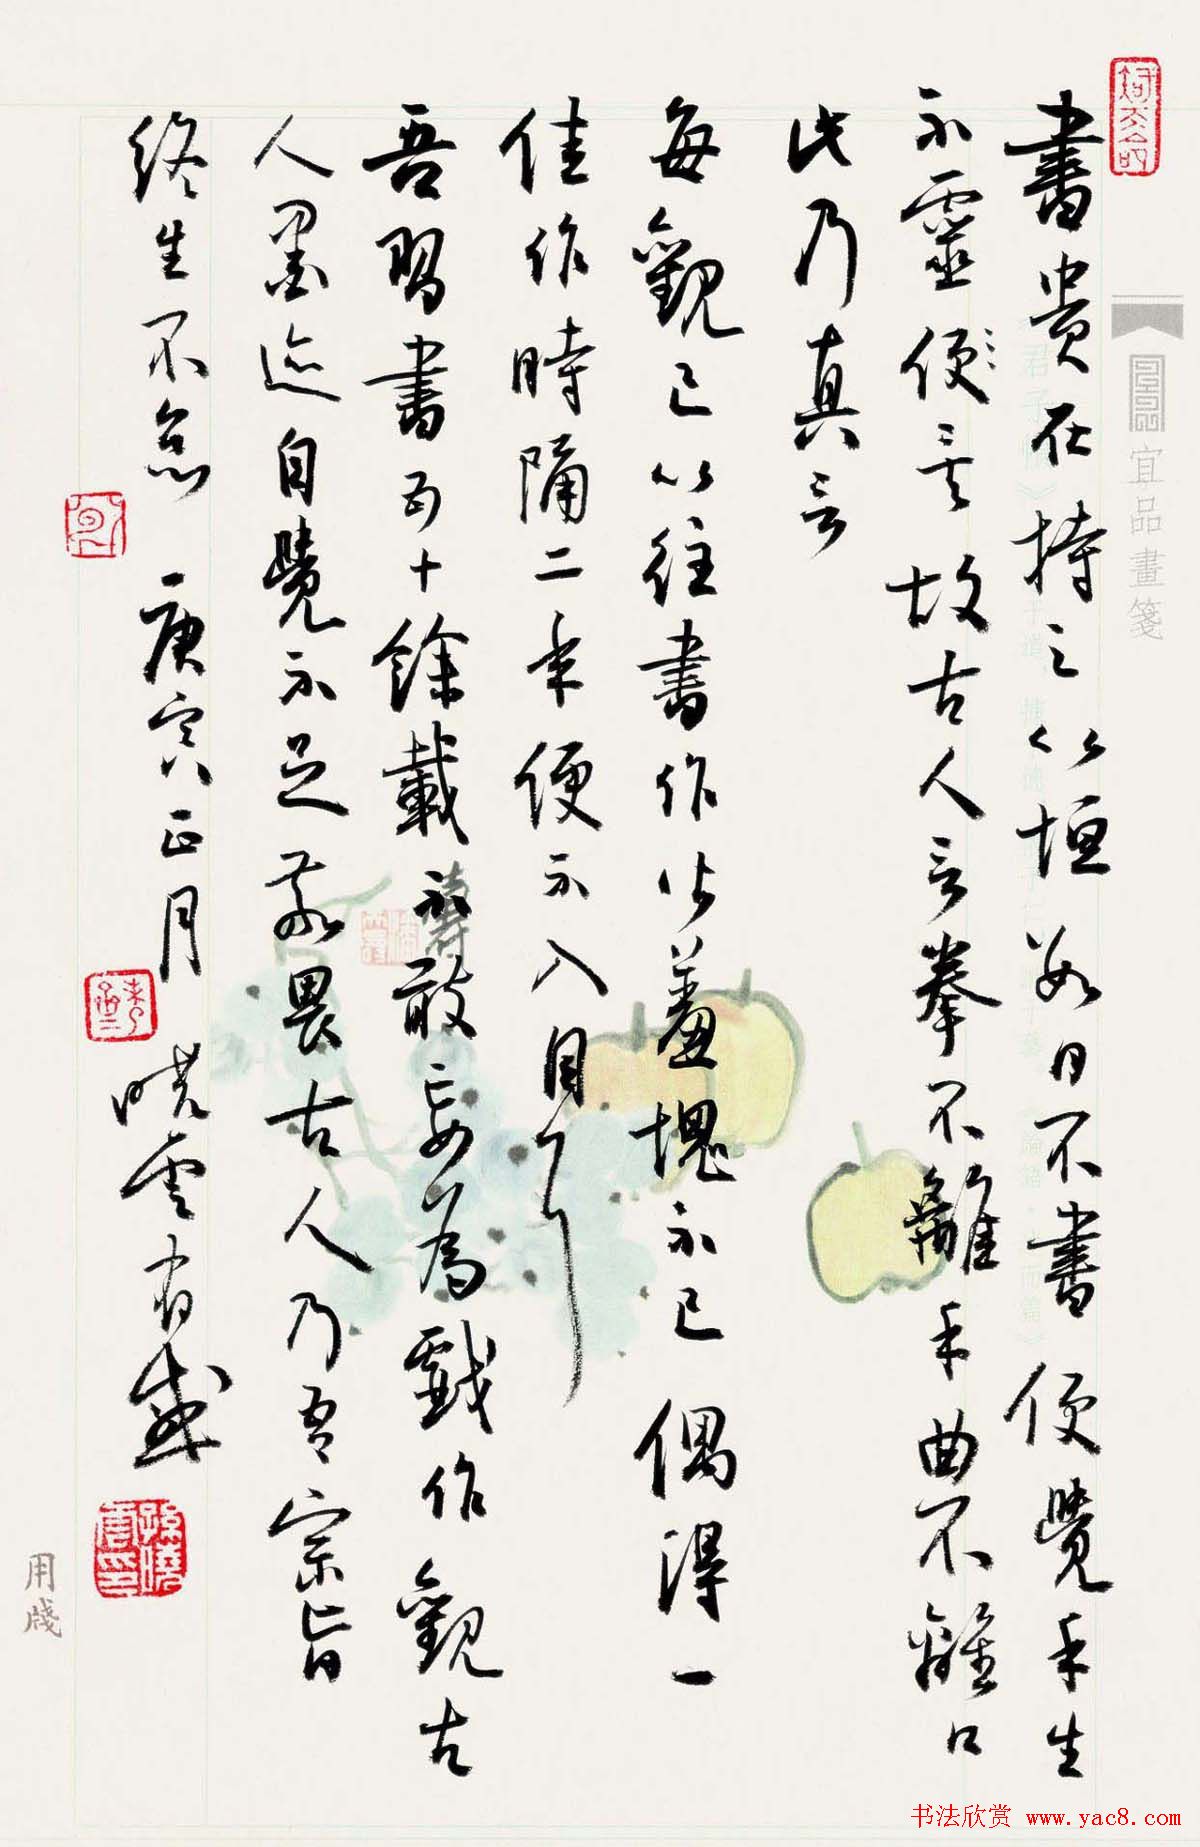 書貴在持之以恒數日不書便覺手生
不靈便矣故古人言拳不離手曲不離口
此乃真言
每觀已以往書作皆羞愧不已偶得一
佳作時隔二年便不入目了
吾習書五十餘載不敢妄為戲作觀古
人墨迹自覺不足敬畏古人乃吾宗旨
終生不怠 庚寅正月 曉雲有感
孫曉雲印
宜品畫箋
用牋
书法欣赏 www.yac8.com